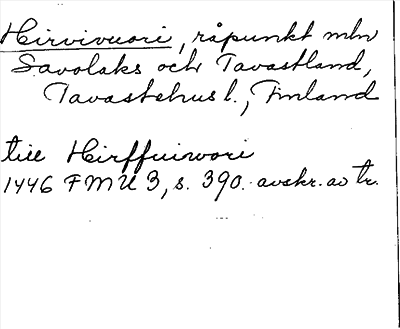 Hirvivuori, råpunkt mln
Savolaks och Tavastland,
Tavastehus l., Finland
till Hirffuiwori
1446 FMU 3, s. 390. avskr. av tr.